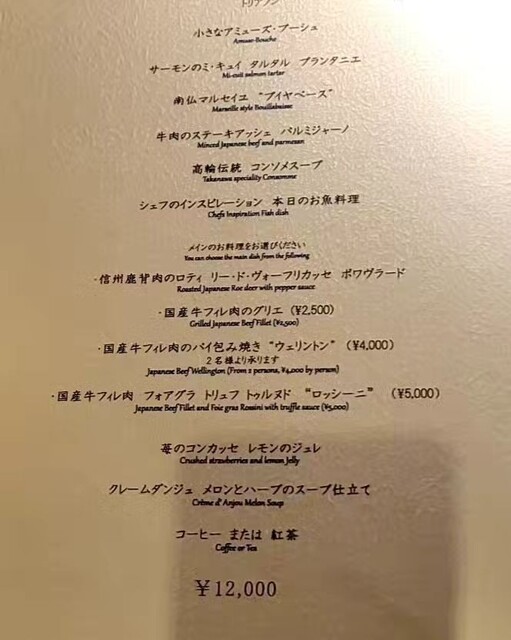 トリアノン
小さなアミューズ・ブーシュ
Amuse-Bouche
サーモンのミ・キュイ タルタル プランタニエ
Mi-cuit salmon tartar
南仏マルセイユ “ブイヤベース”
Marseille style Bouillabaisse
牛肉のステーキアッシュ パルミジャーノ
Minced Japanese beef and parmesan
高輪伝統 コンソメスープ
Takanawa speciality Consomme
シェフのインスピレーション 本日のお魚料理
Chefs Inspiration Fish dish
メインのお料理をお選びください
You can choose the main dish from the following
・信州鹿背肉のロティ リー・ド・ヴォーフリカッセ ポワヴラード
Roasted Japanese Roe deer with pepper sauce
・国産牛フィレ肉のグリエ (¥2,500)
Grilled Japanese Beef Fillet (¥2,500)
・国産牛フィレ肉のパイ包み焼き “ウェリントン” (¥4,000)
2名様より承ります
Japanese Beef Wellington (From 2 persons, ¥4,000 by person)
・国産牛フィレ肉 フォアグラ トリュフ トゥルヌド “ロッシーニ” (¥5,000)
Japanese Beef Fillet and Foie gras Rossini with truffle sauce (¥5,000)
苺のコンカッセ レモンのジュレ
Crushed strawberries and lemon Jelly
クレームダンジュ メロンとハーブのスープ仕立て
Crème d' Anjou Melon Soup
コーヒー または 紅茶
Coffee or Tea
¥12,000